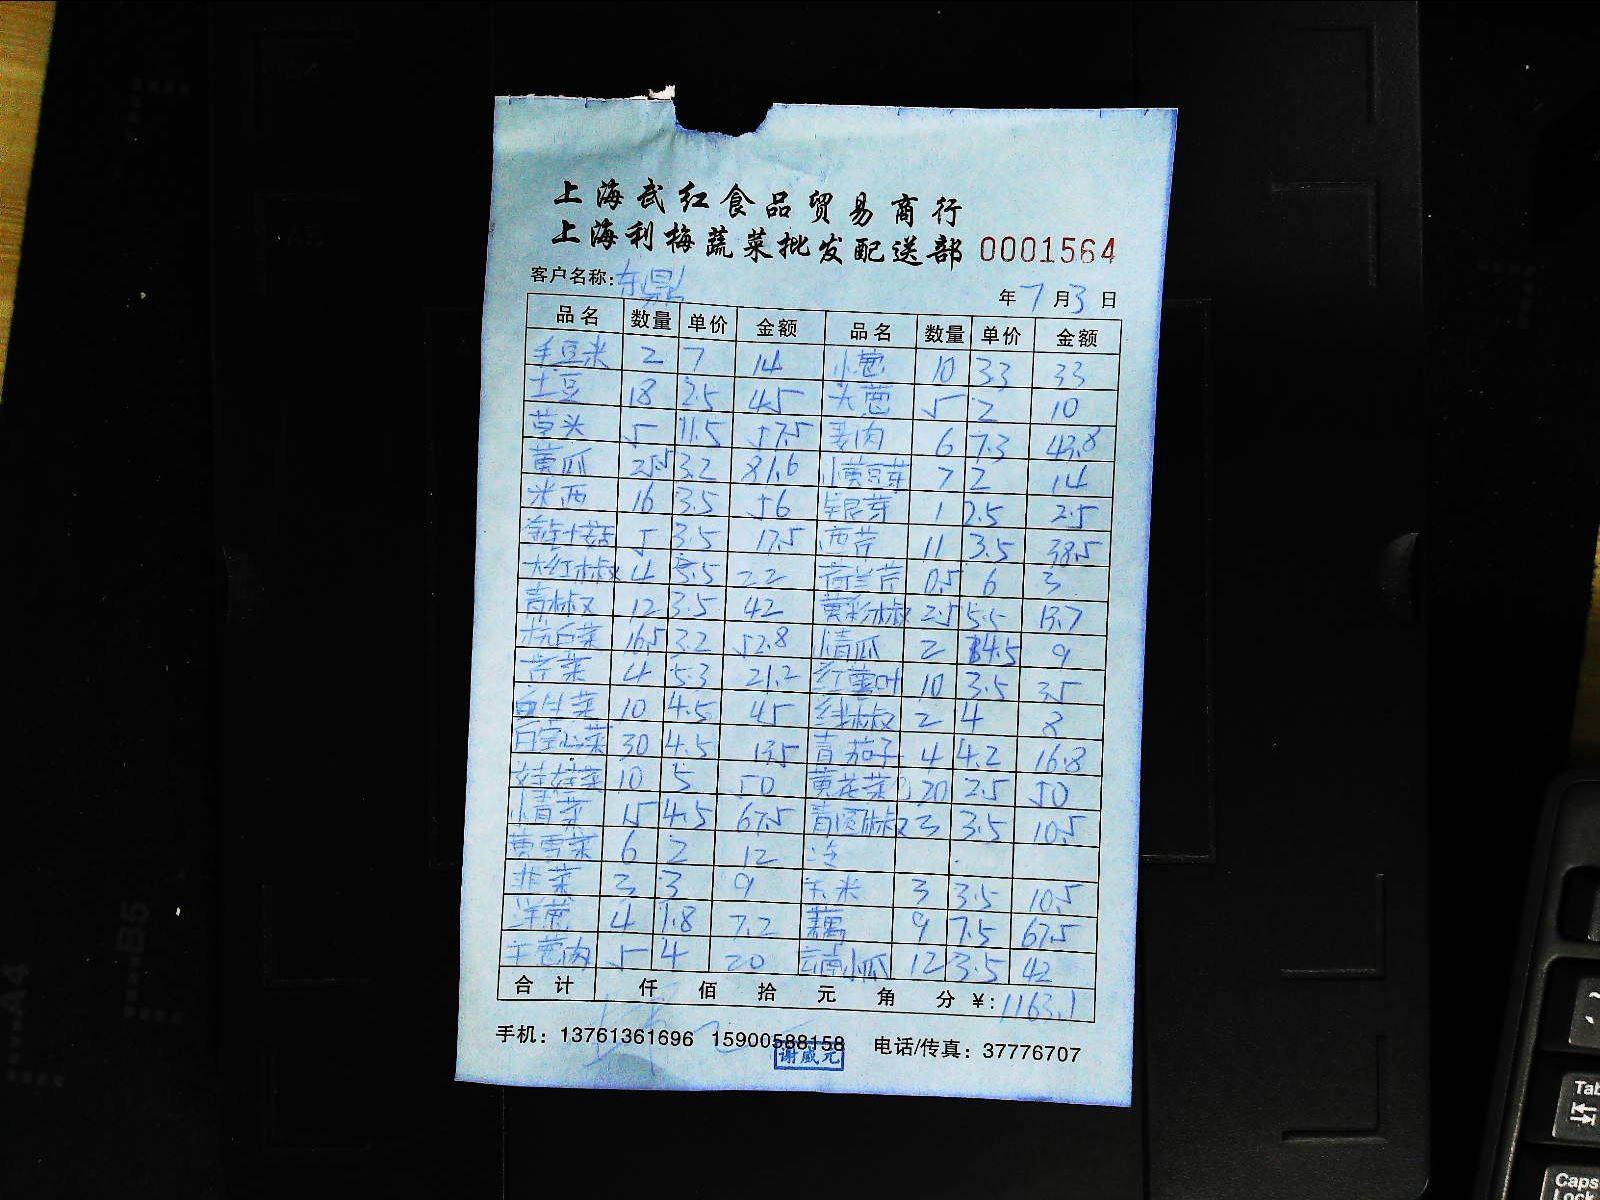 上海武红食品贸易商行
上海利梅蔬菜批发配送部 0001564
客户名称: 东鼎 年 7 月 3 日
品名 数量 单价 金额 品名 数量 单价 金额
毛豆米 2 7 14 小葱 10 3.3 33
土豆 18 2.5 45 大葱 5 2 10
草头 5 11.5 57.5 姜肉 6 7.3 43.8
黄瓜 25.5 3.2 81.6 小黄豆芽 7 2 14
米西 16 3.5 56 银芽 1 2.5 2.5
金针菇 5 3.5 17.5 西芹 11 3.5 38.5
大红椒 4 5.5 22 荷兰芹 0.5 6 3
青椒 12 3.5 42 黄彩椒 2.5 5.5 13.7
杭白菜 16.5 3.2 52.8 小青瓜 2 4.5 9
芹菜 4 5.3 21.2 红薯叶 10 3.5 35
10 4.5 45 线椒 2 4 8
白空心菜 30 4.5 135 青茄子 4 4.2 16.8
娃娃菜 10 5 50 黄花菜 20 2.5 50
小青菜 15 4.5 67.5 青圆椒 3 3.5 10.5
黄雪菜 6 2 12
韭菜 3 3 9 玉米 3 3.5 10.5
洋葱 4 1.8 7.2 藕 9 7.5 67.5
干葱肉 5 4 20 云南小瓜 12 3.5 42
合计 仟 佰 拾 元 角 分 ¥: 1163.1
手机: 13761361696 15900588158 电话/传真: 37776707
谢威元